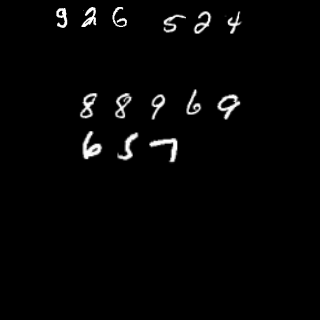 926 524
88969
657